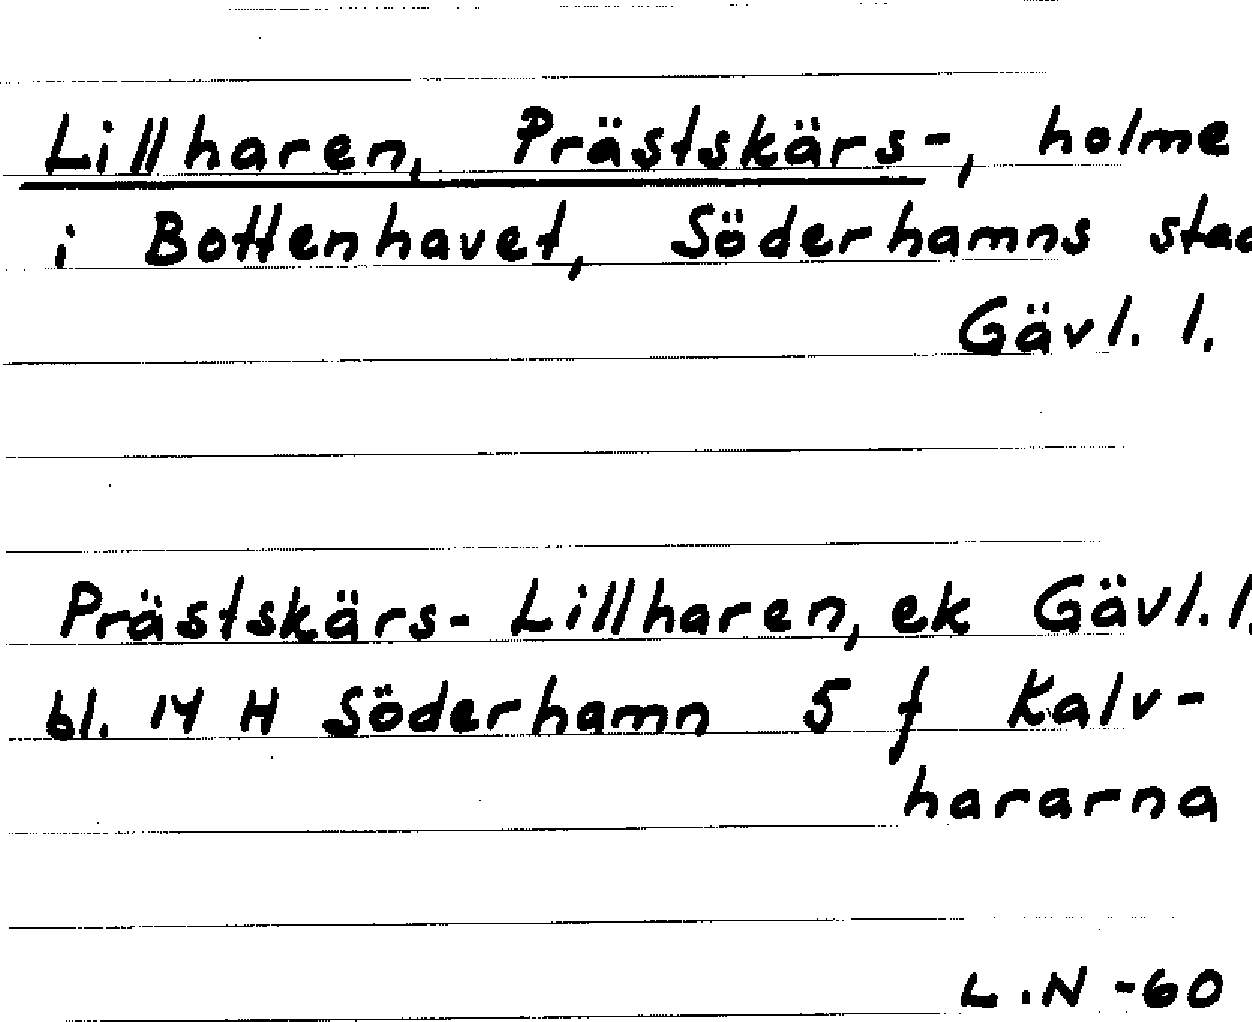 Lillharen, Prästskärs-, holme
i Bottenhavet, Söderhamns stad
Gävl. l.
Prästskärs-Lillharen, ek Gävl. l.
bl. 14 H Söderhamn 5 f Kalv-
hararna
L.N -60